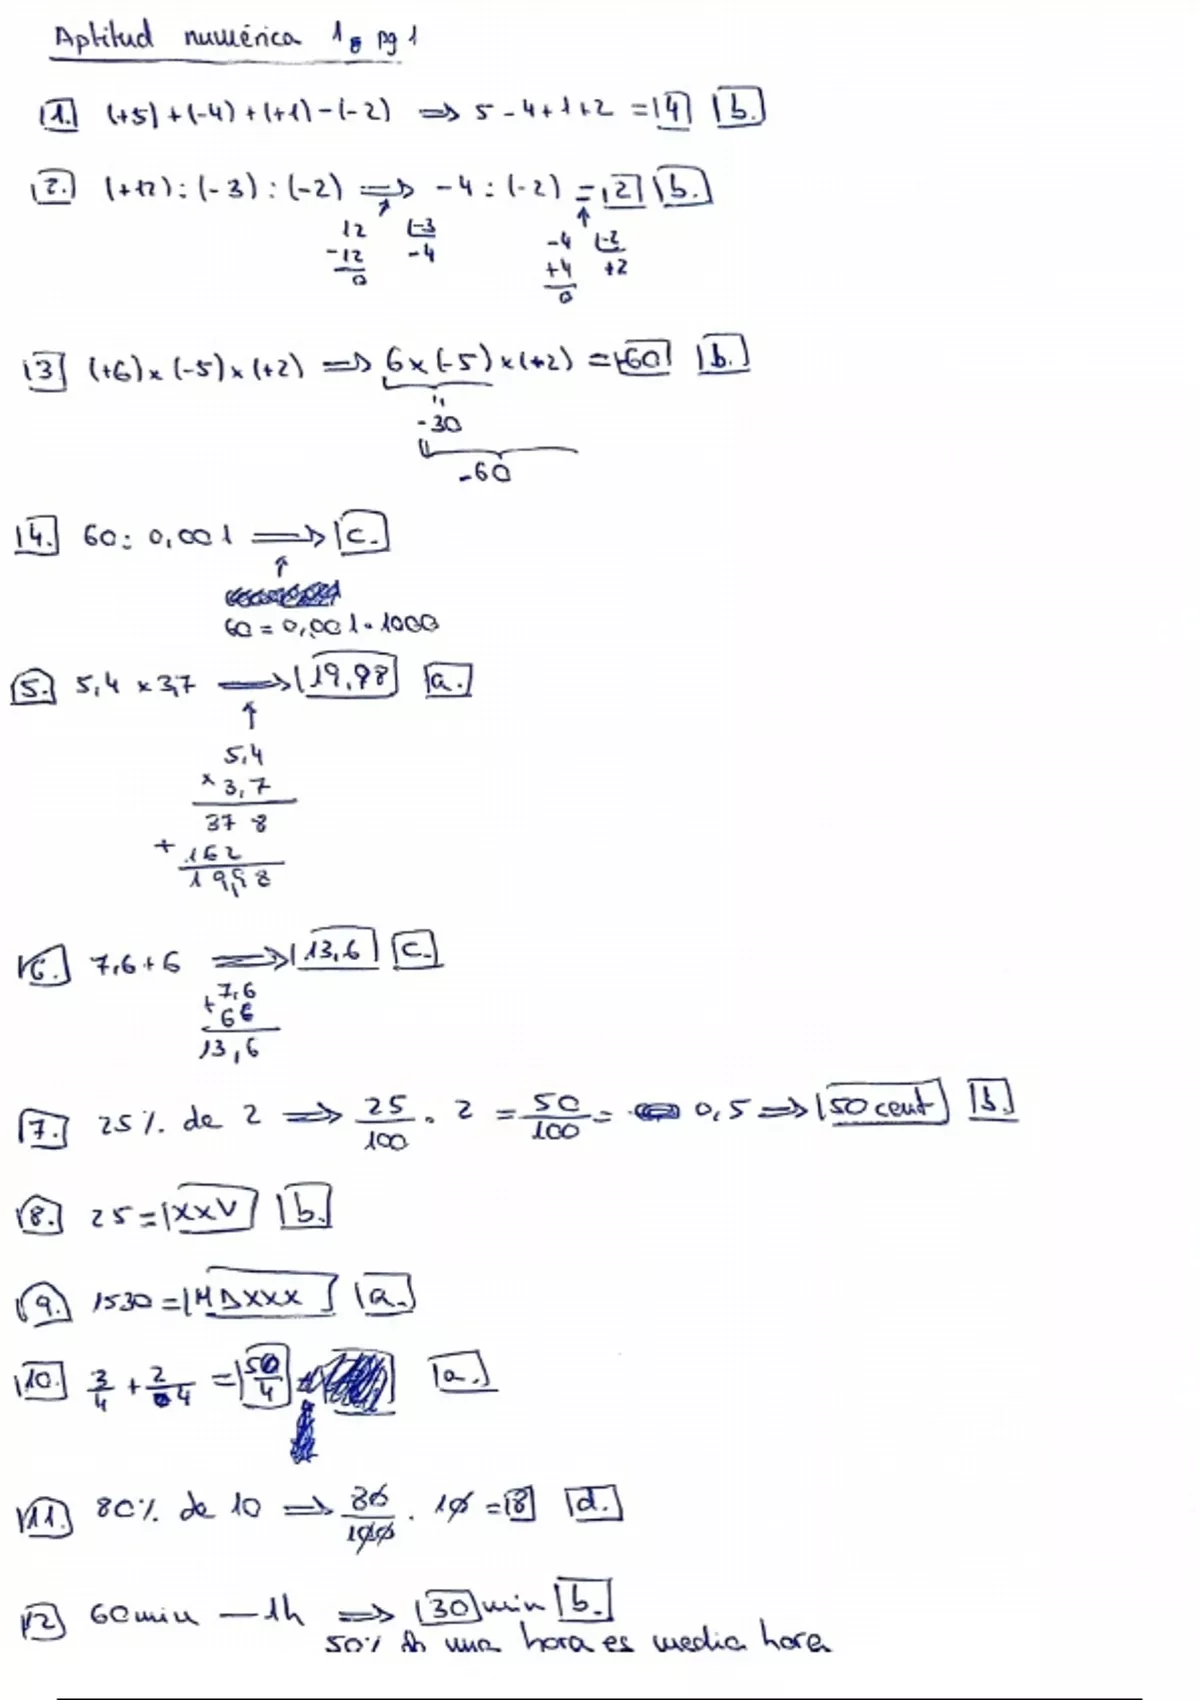 Aptitud numérica 1 pg 1
1. (+5)+(-4)+(+1)-(-2) => 5-4+1+2 = 4 b.
2. (+12):(-3):(-2) => -4:(-2) = 2 b.
12 -3 -4 -2
-12 -4 +4 +2
0 0
3 (+6)x(-5)x(+2) => 6x(-5)x(+2) = -60 b.
-30
-60
4. 60: 0,001 => c.
60 = 0,001 · 1000
5. 5,4 x 3,7 => 19,98 a.
5,4
x 3,7
378
+ 162
19,98
6. 7,6+6 => 13,6 c.
+7,6
6
13,6
7. 25% de 2 => 25/100 · 2 = 50/100 = 0,5 => 50 cent b.
8. 25 = XXV b.
9. 1530 = MDXXX a.
10. 3/4 + 2/4 = 5/4 a.
11. 80% de 10 => 80/100 · 10 = 8 d.
12 60 min — 1h => 30 min b.
50% de una hora es media hora